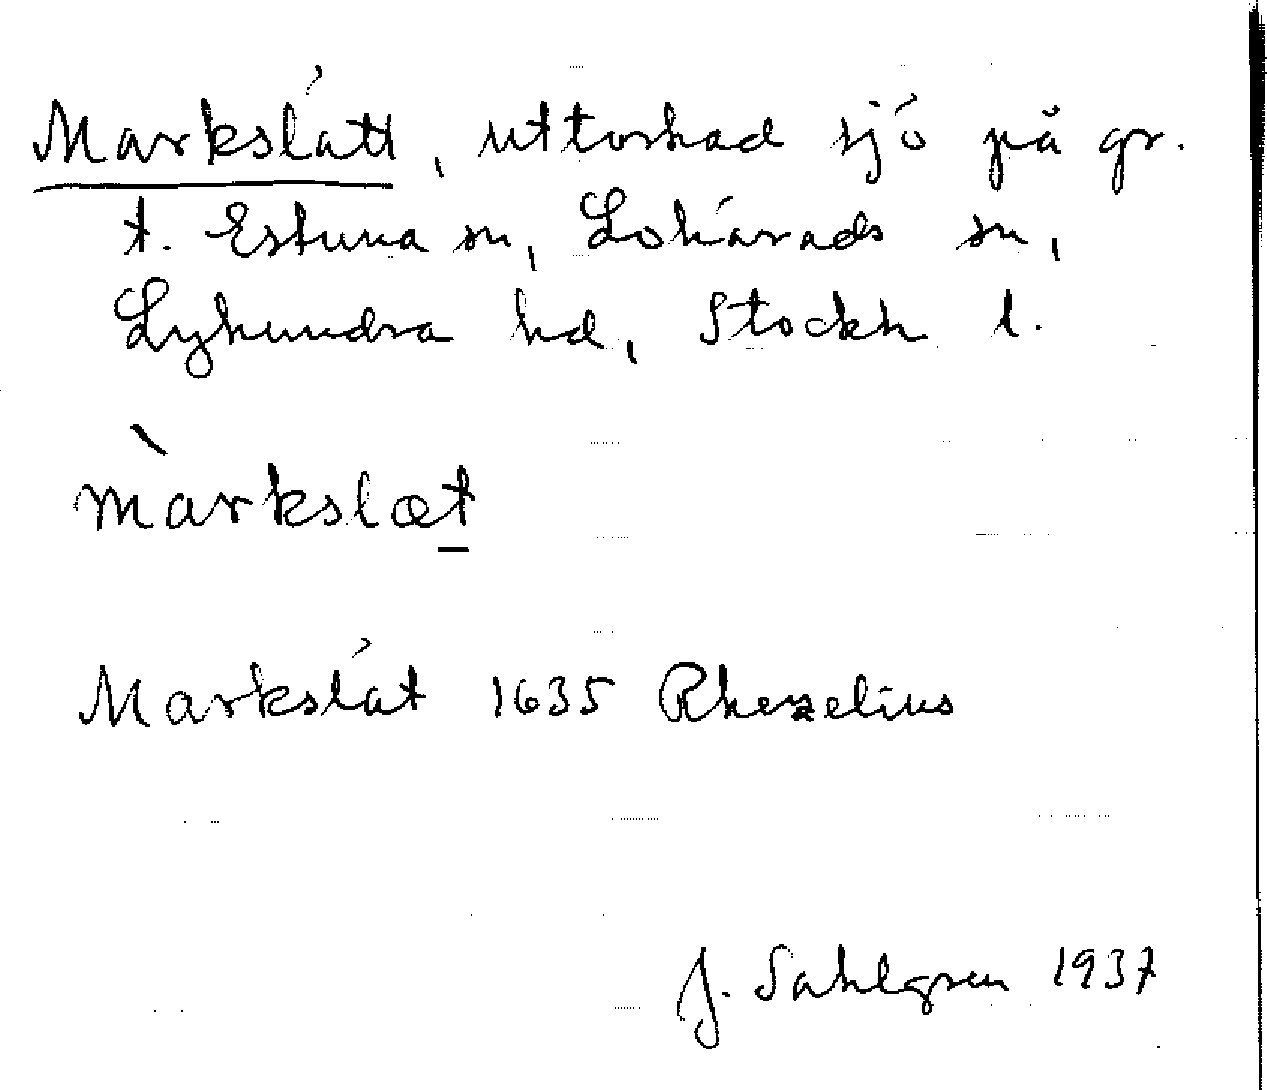 Markslätt, uttorkad sjö på gr.
t. Estuna sn, Lohärads sn,
Lyhundra hd, Stockh l.
màrkslæt
Markslät 1635 Rhezelius
J. Sahlgren 1937